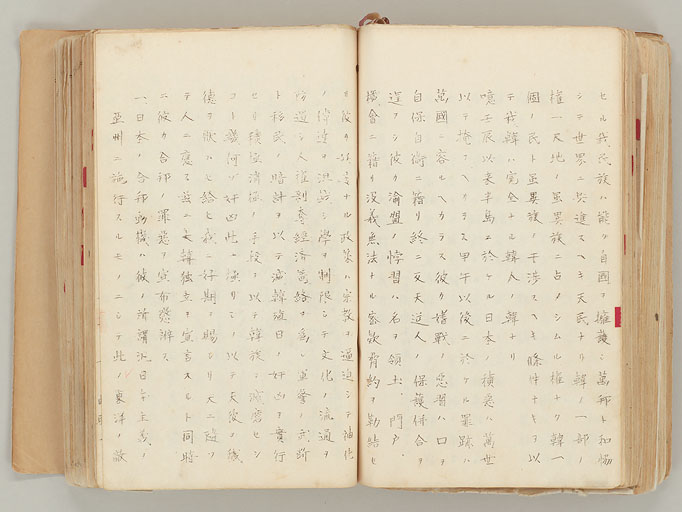 セル我民族ハ能ク自國ヲ擁護シ萬邦ト和協
シテ世界ニ共進スヘキ天民ナリ韓ノ一部ノ
權一天地ノ虽異族ニ占タシムル權ナク韓一
個ノ民ト虽異族ノ干渉スヘキ條件ナキヲ以
テ我韓ハ完全ナル韓人ノ韓ナリ
噫壬辰以来半島ニ於ケル日本ノ積惡ハ萬世
以テ掩フヘクラス甲午以後ニ於ケル罪跡ハ
萬國ニ容ルヘカラス彼ク嗜戰ノ惡習ハ口ヲ
自保自衛ニ籍リ終ニ反天逆人ノ保護併合ヲ
逞フシ彼ク渝盟ノ悖習ハ名ヲ領土、門戸、
機會ニ籍リ没義無法ナル密欵脅約ヲ勒結セ
リ彼ク
ナル政策ハ宗教ヲ逼迫シテ神化
ノ傳達ヲ沮戯シ學ヲ制限シテ文化ノ流通ヲ
防遏シ人權剥奪經済籠絡ヲ為シ軍警ノ武断
ト移民ノ暗計ヲ以テ滅韓殖日ノ奸凶ヲ實行
セリ積極消極ノ手段ヲ以テ韓族ヲ減磨セシ
コト幾何ゾ
徳ヲ
給ヒ我ニ好期ヲ賜シリ天ニ随ヒ
テ人ニ應ス茲ニ大韓独立ヲ宣言スルト同時
ニ彼ク合邦ノ罪惡ヲ宣布懲辨ス
一、日本ノ合邦動機ハ彼ノ所謂汎日本主義ノ
亜州ニ施行スルモノニシテ此ノ東洋ノ敵